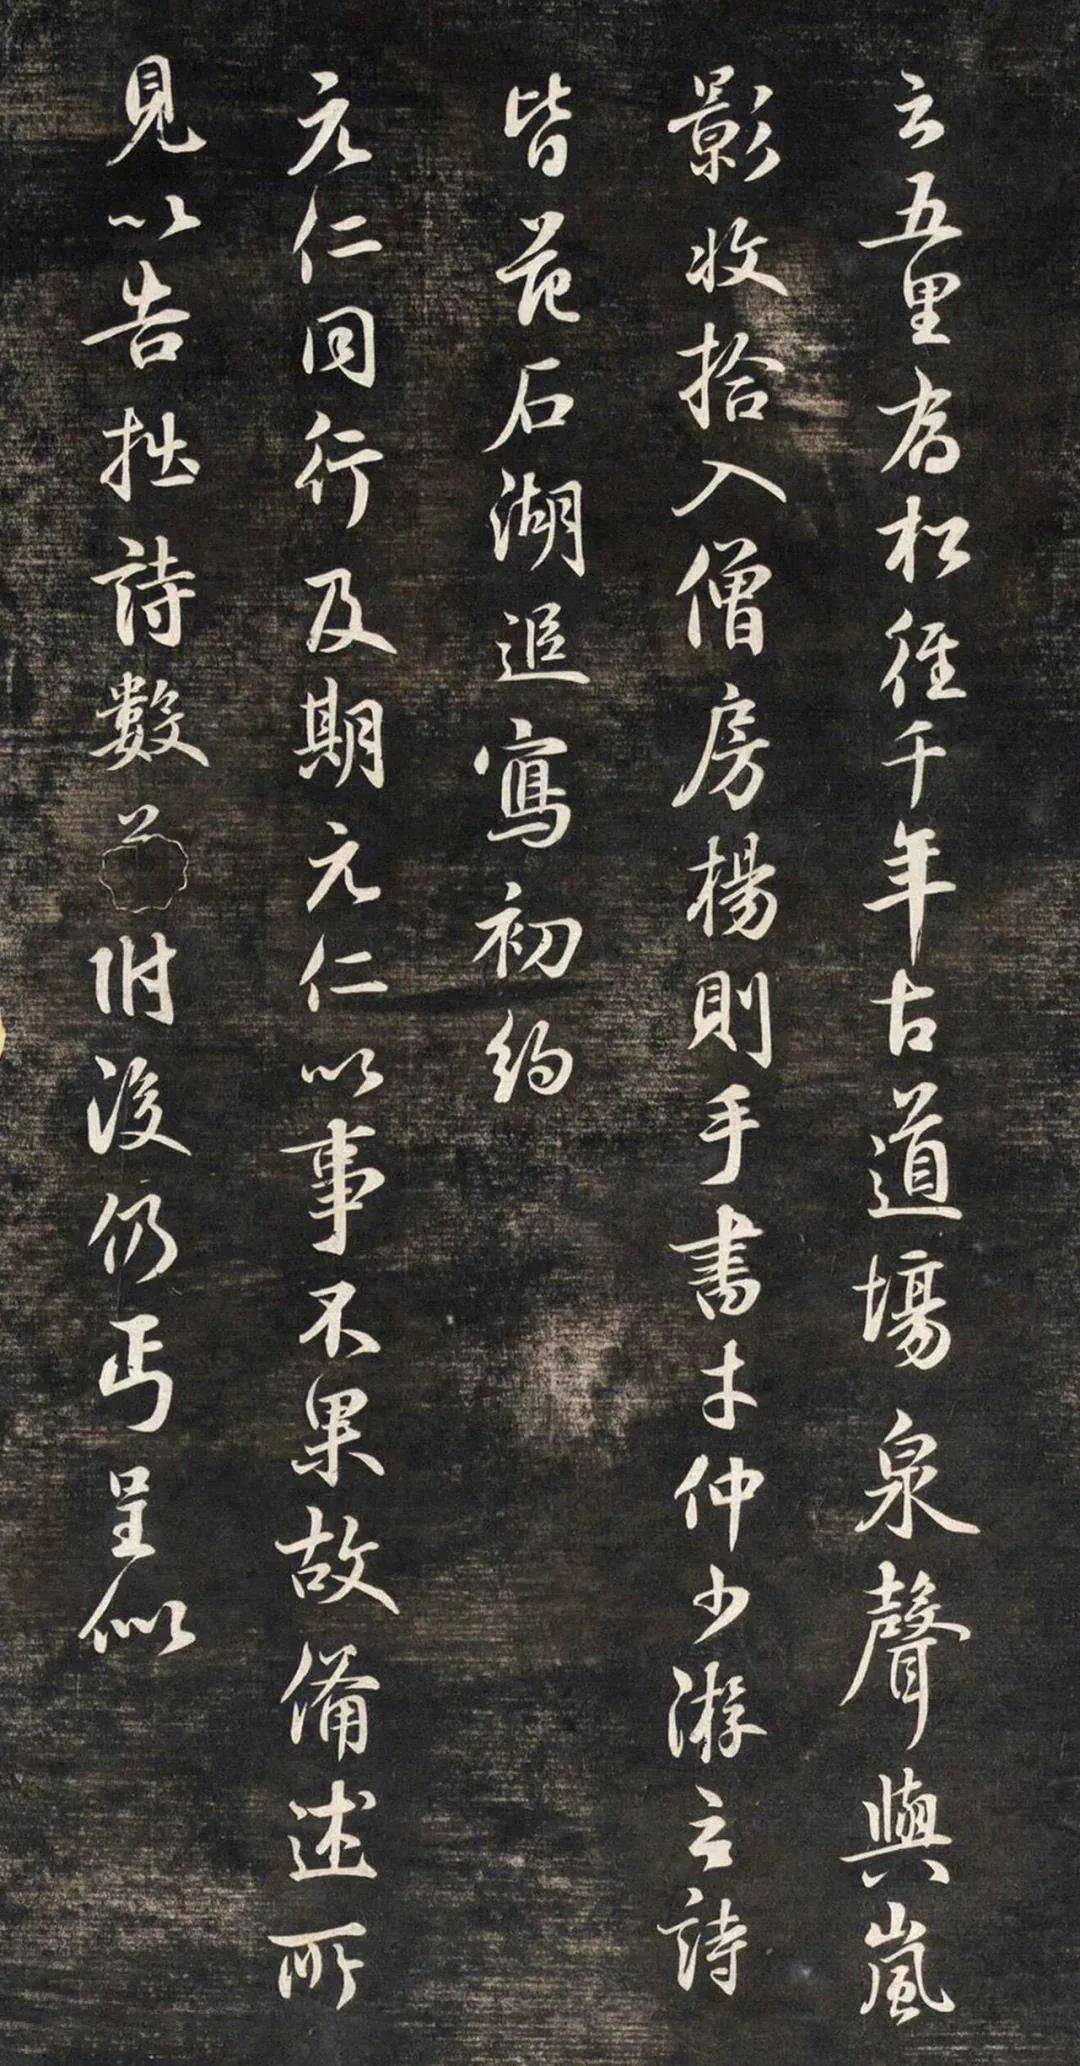 云五里為松徑千年古道場泉聲與嵐
影收拾入僧房楊則手書才仲少游云詩
皆范石湖追寫初約
元仁同行及期元仁以事不果故備述所
見以告拙詩數附後仍丐呈似